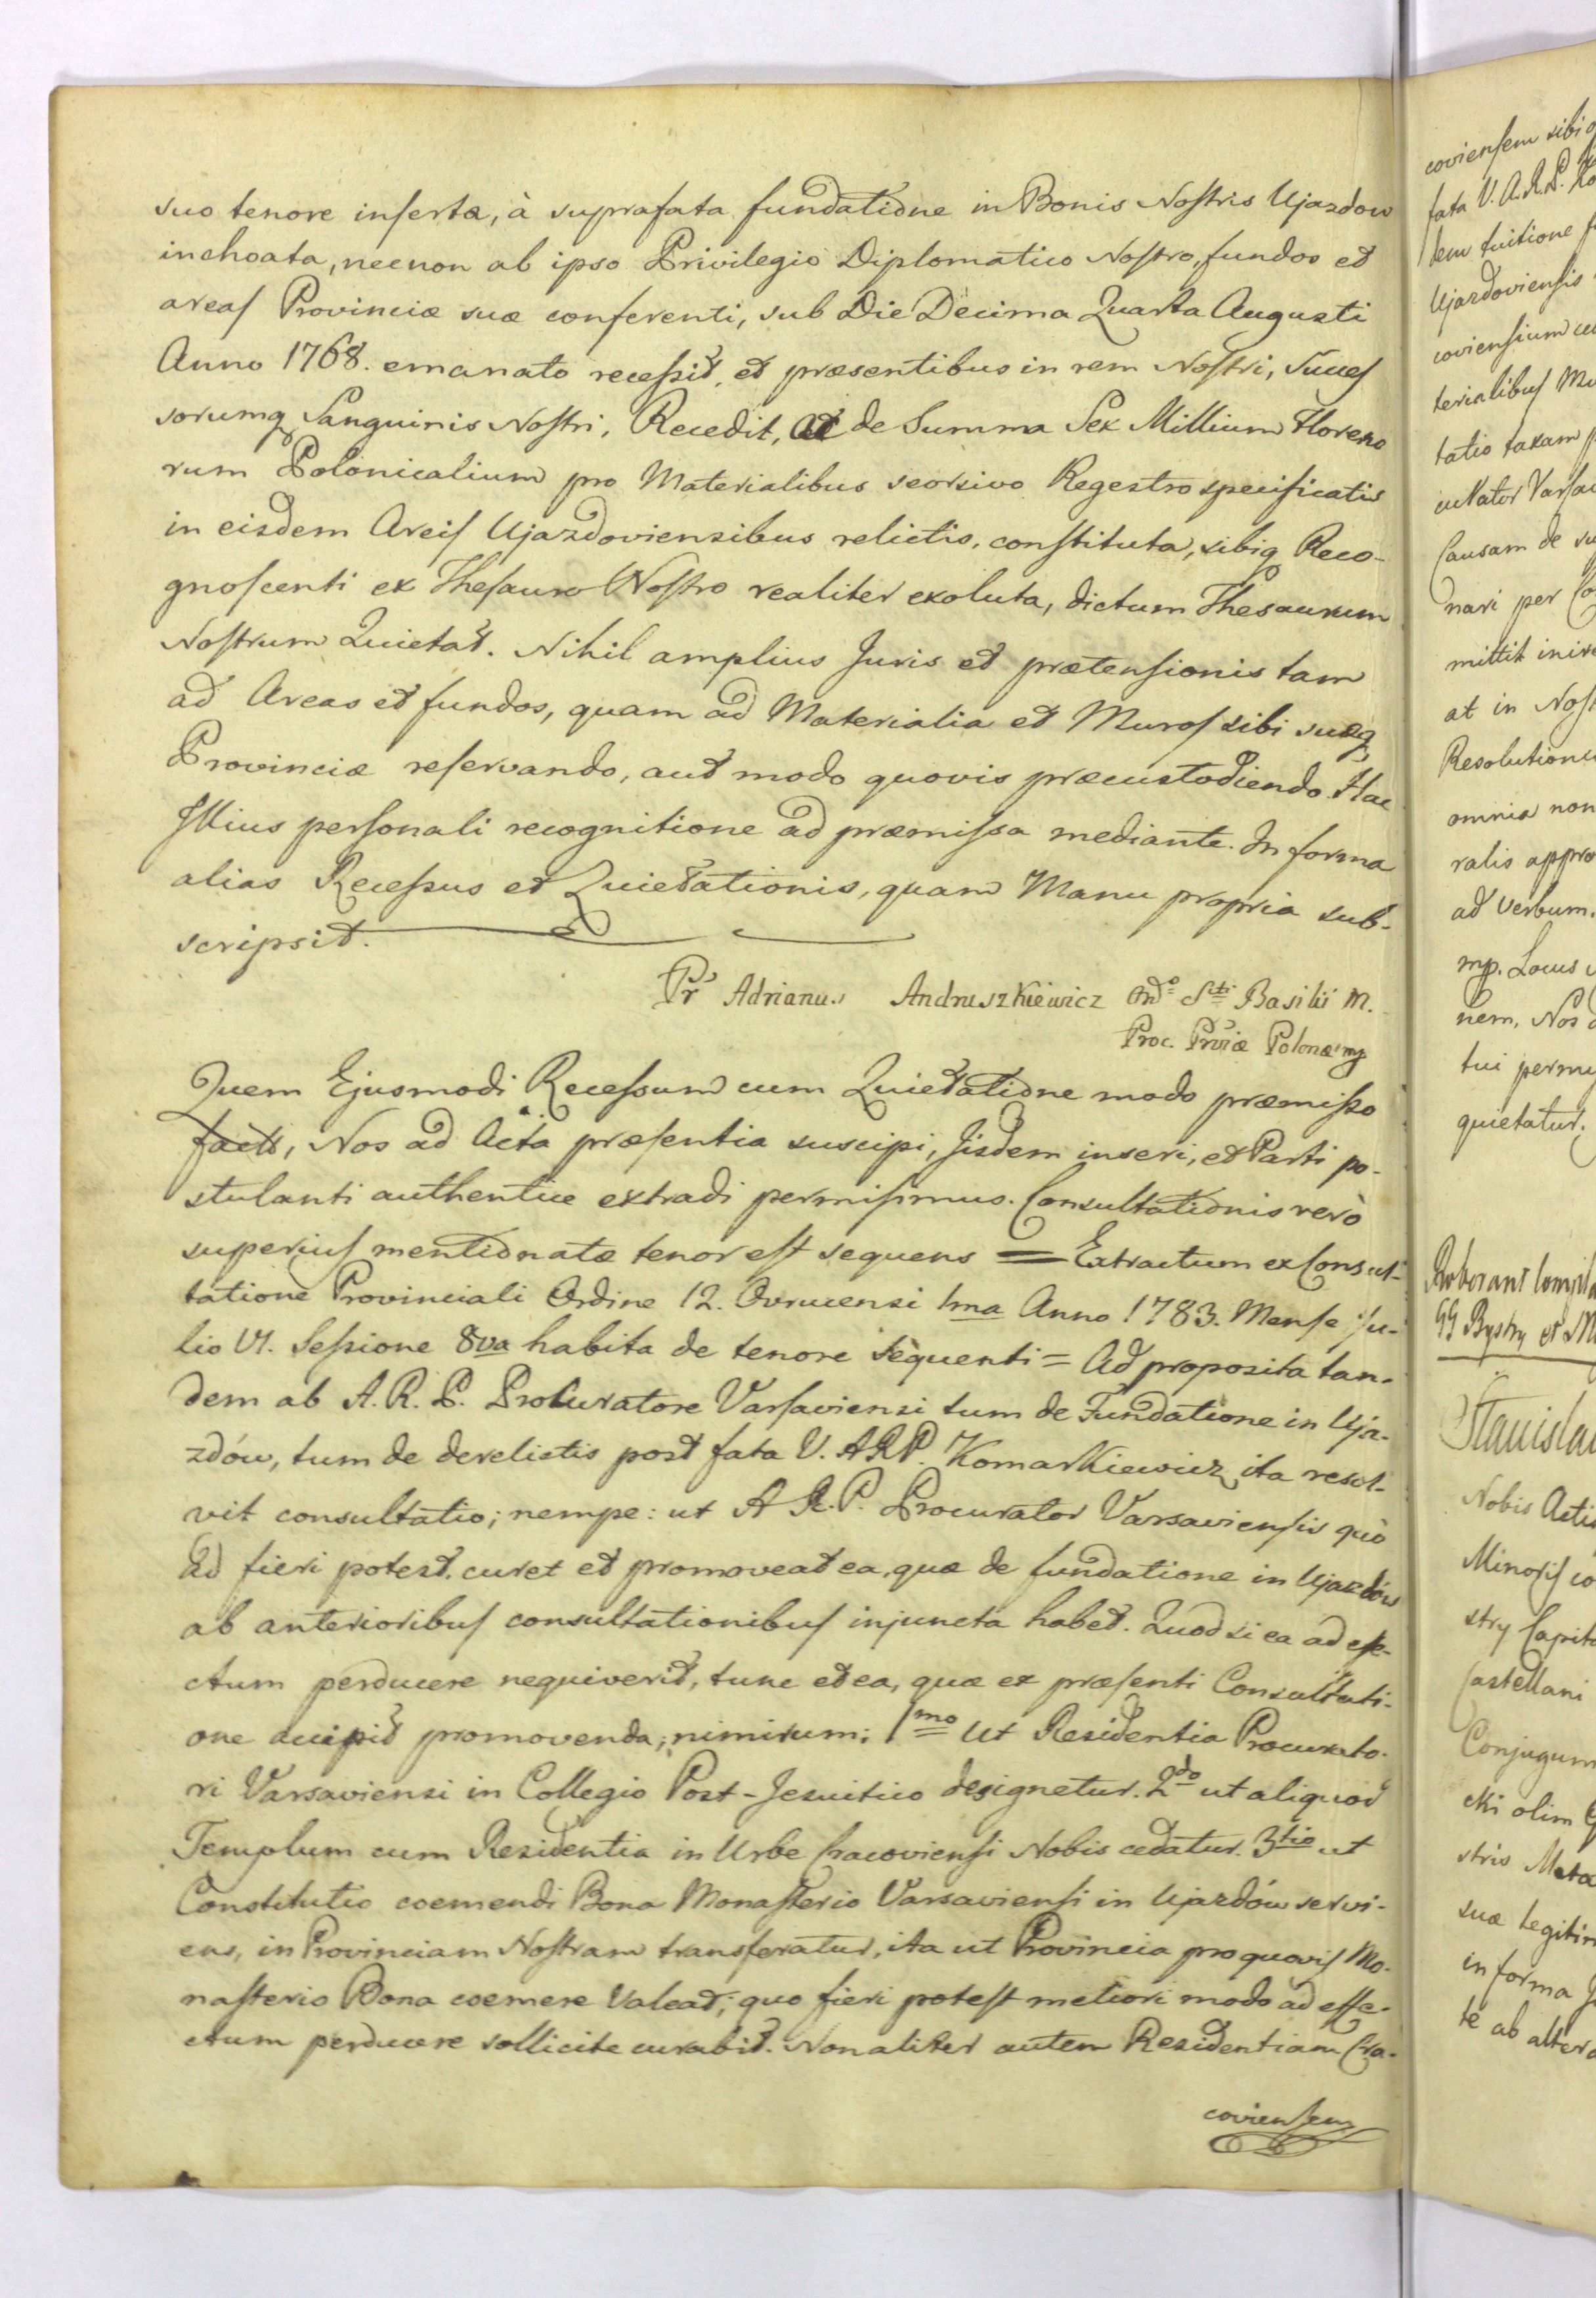 suo tenore inserta, à suprafata fundatione in Bonis Nostris Ujazdow
inchoata, necnon ab ipso Privilegio Diplomatico Nostro, fundos et
areas Provinciæ suæ conferenti, sub Die Decima Quarta Augusti
Anno 1768. emanato recessit, et præsentibus in rem Nostri, Succes
sorumq Sanguinis Nostri, Recedit, ac de Summa Sex Millium Floreno
rum Polonicalium pro Materialibus seorsivo Regestro specificatis
in eisdem Areis Ujazdoviensibus relictis, constituta, sibiq Reco-
gnoscenti ex Thesauro Nostro realiter exoluta, dictum Thesaurum
Nostrum Quietat. Nihil amplius Juris et prætensionis tam
ad Areas et fundos, quam ad Materialia et Muros sibi suæq
Provinciæ reservando, aut modo quovis præcustodiendo. Hac
Illius personali recognitione ad præmissa mediante. In forma
alias Recessus et Quietationis, quam Manu propria sub-
scripsit.
Pr Adrianus Andruszkiewicz Ord Sti Basilii M.
Proc. Prviæ Polonæ mp
Quem Ejusmodi Recessum cum Quietatione modo præmisso
facti, Nos ad Acta præsentia suscipi, Iisdem inseri, et Parti po-
stulanti authentice extradi permisimus. Consultationis verò
superius mentionatæ tenor est sequens = Extractum ex Consul-
tatione Provinciali Ordine 12. Ovrucensi 1ma Anno 1783. Mense Ju-
lio VI. Sessione 8va habita de tenore sequenti = Ad proposita tan-
dem ab A. R. P. Procuratore Varsaviensi tum de Fundatione in Uja-
zdów, tum de derelictis post fata V. ARP. Komarkiewicz ita resol-
vit consultatio; nempe: ut A R. P. Procurator Varsaviensis quò
ad fieri potest. curet et promoveat ea, quæ de fundatione in Ujazdów
ab anterioribus consultationibus injuncta habet. Quod si ea ad effe-
ctum perducere nequiverit, tunc et ea, quæ ex præsenti Consultati-
one accipit promovenda; nimirum: 1mo Ut Residentia Procurato-
ri Varsaviensi in Collegio Post-Jesuitico designetur. 2do ut aliquod
Templum cum Residentia in Urbe Cracoviensi Nobis cedatur. 3tio ut
Constitutio coemendi Bona Monasterio Varsaviensi in Ujazdów servi-
ens, in Provinciam Nostram transferatur, ita ut Provincia pro quovis Mo-
nasterio Bona coemere Valeat; quo fieri potest meliori modo ad effe-
ctum perducere sollicite curabit. Non aliter autem Residentiam Cra-
coviensem
coviensem sibi
fata V. A.R.P. Ko
tem tuitione
Ujazdoviensis
coviensium
terialibus
tatio taxam
Causam de
nari per
mittit
at in
Resolution
omnia non
ralis appro
ad verbum.
mp. Locus
nem, Nos
tui permi
quietatur.
Roborant
GG Bystry et
Stanisla
Nobis Acti
Minoris
stry Capit
Castellani
Conjugum
cki olim
stris Meta
suæ legiti
in forma
te ab alter